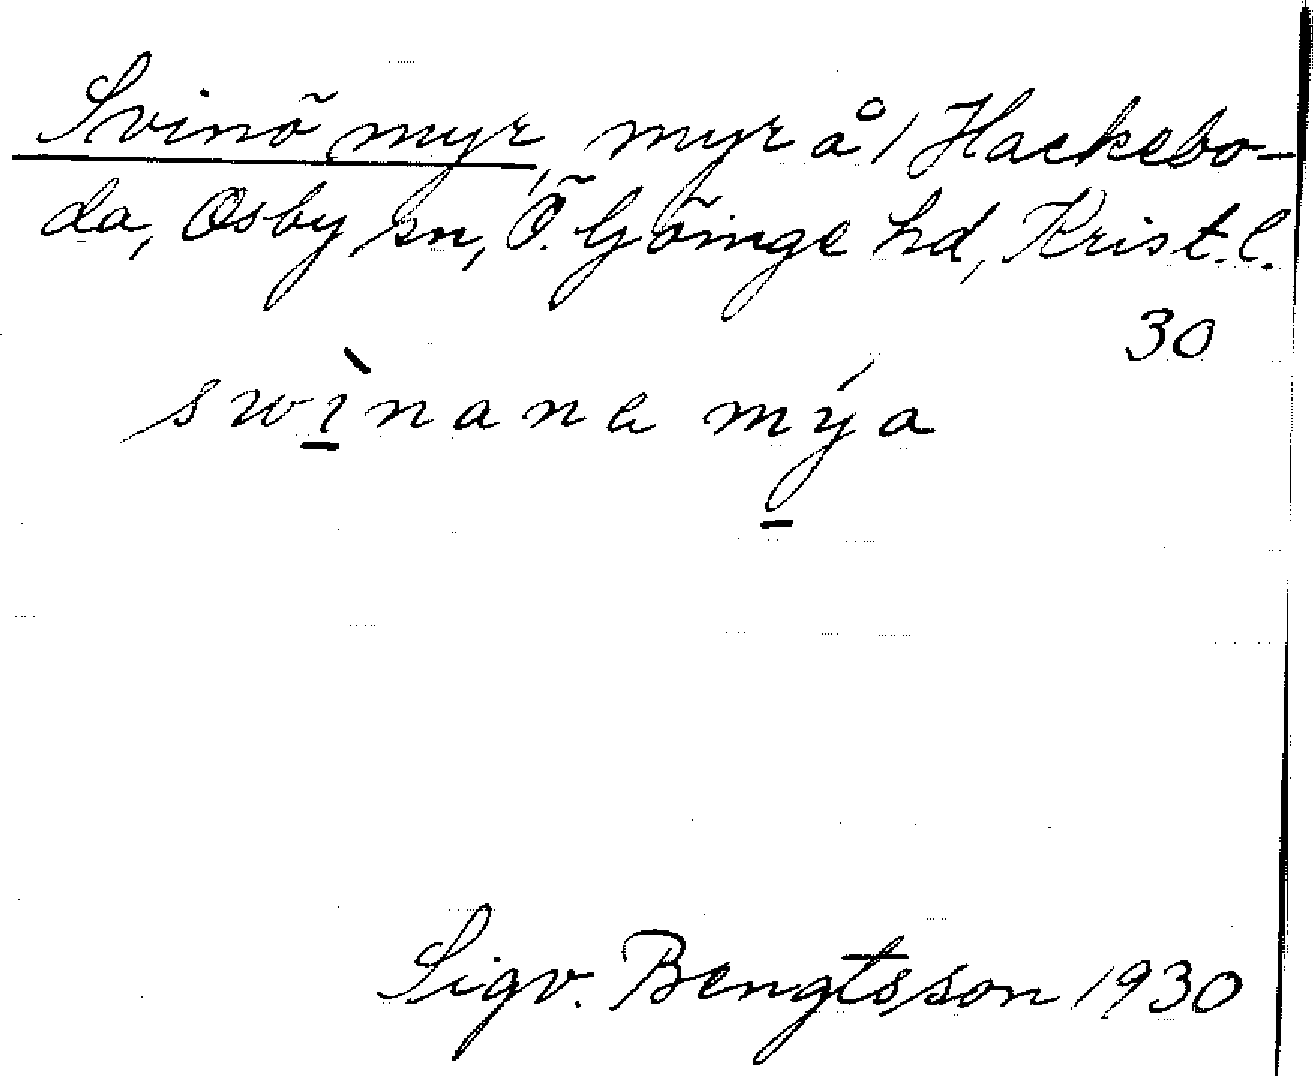 Svinö myr, myr å 1 Hackebo-
da, Osby sn, Ö. Göinge hd, Krist. l.
30
swìnana mýa
Sigv. Bengtsson 1930